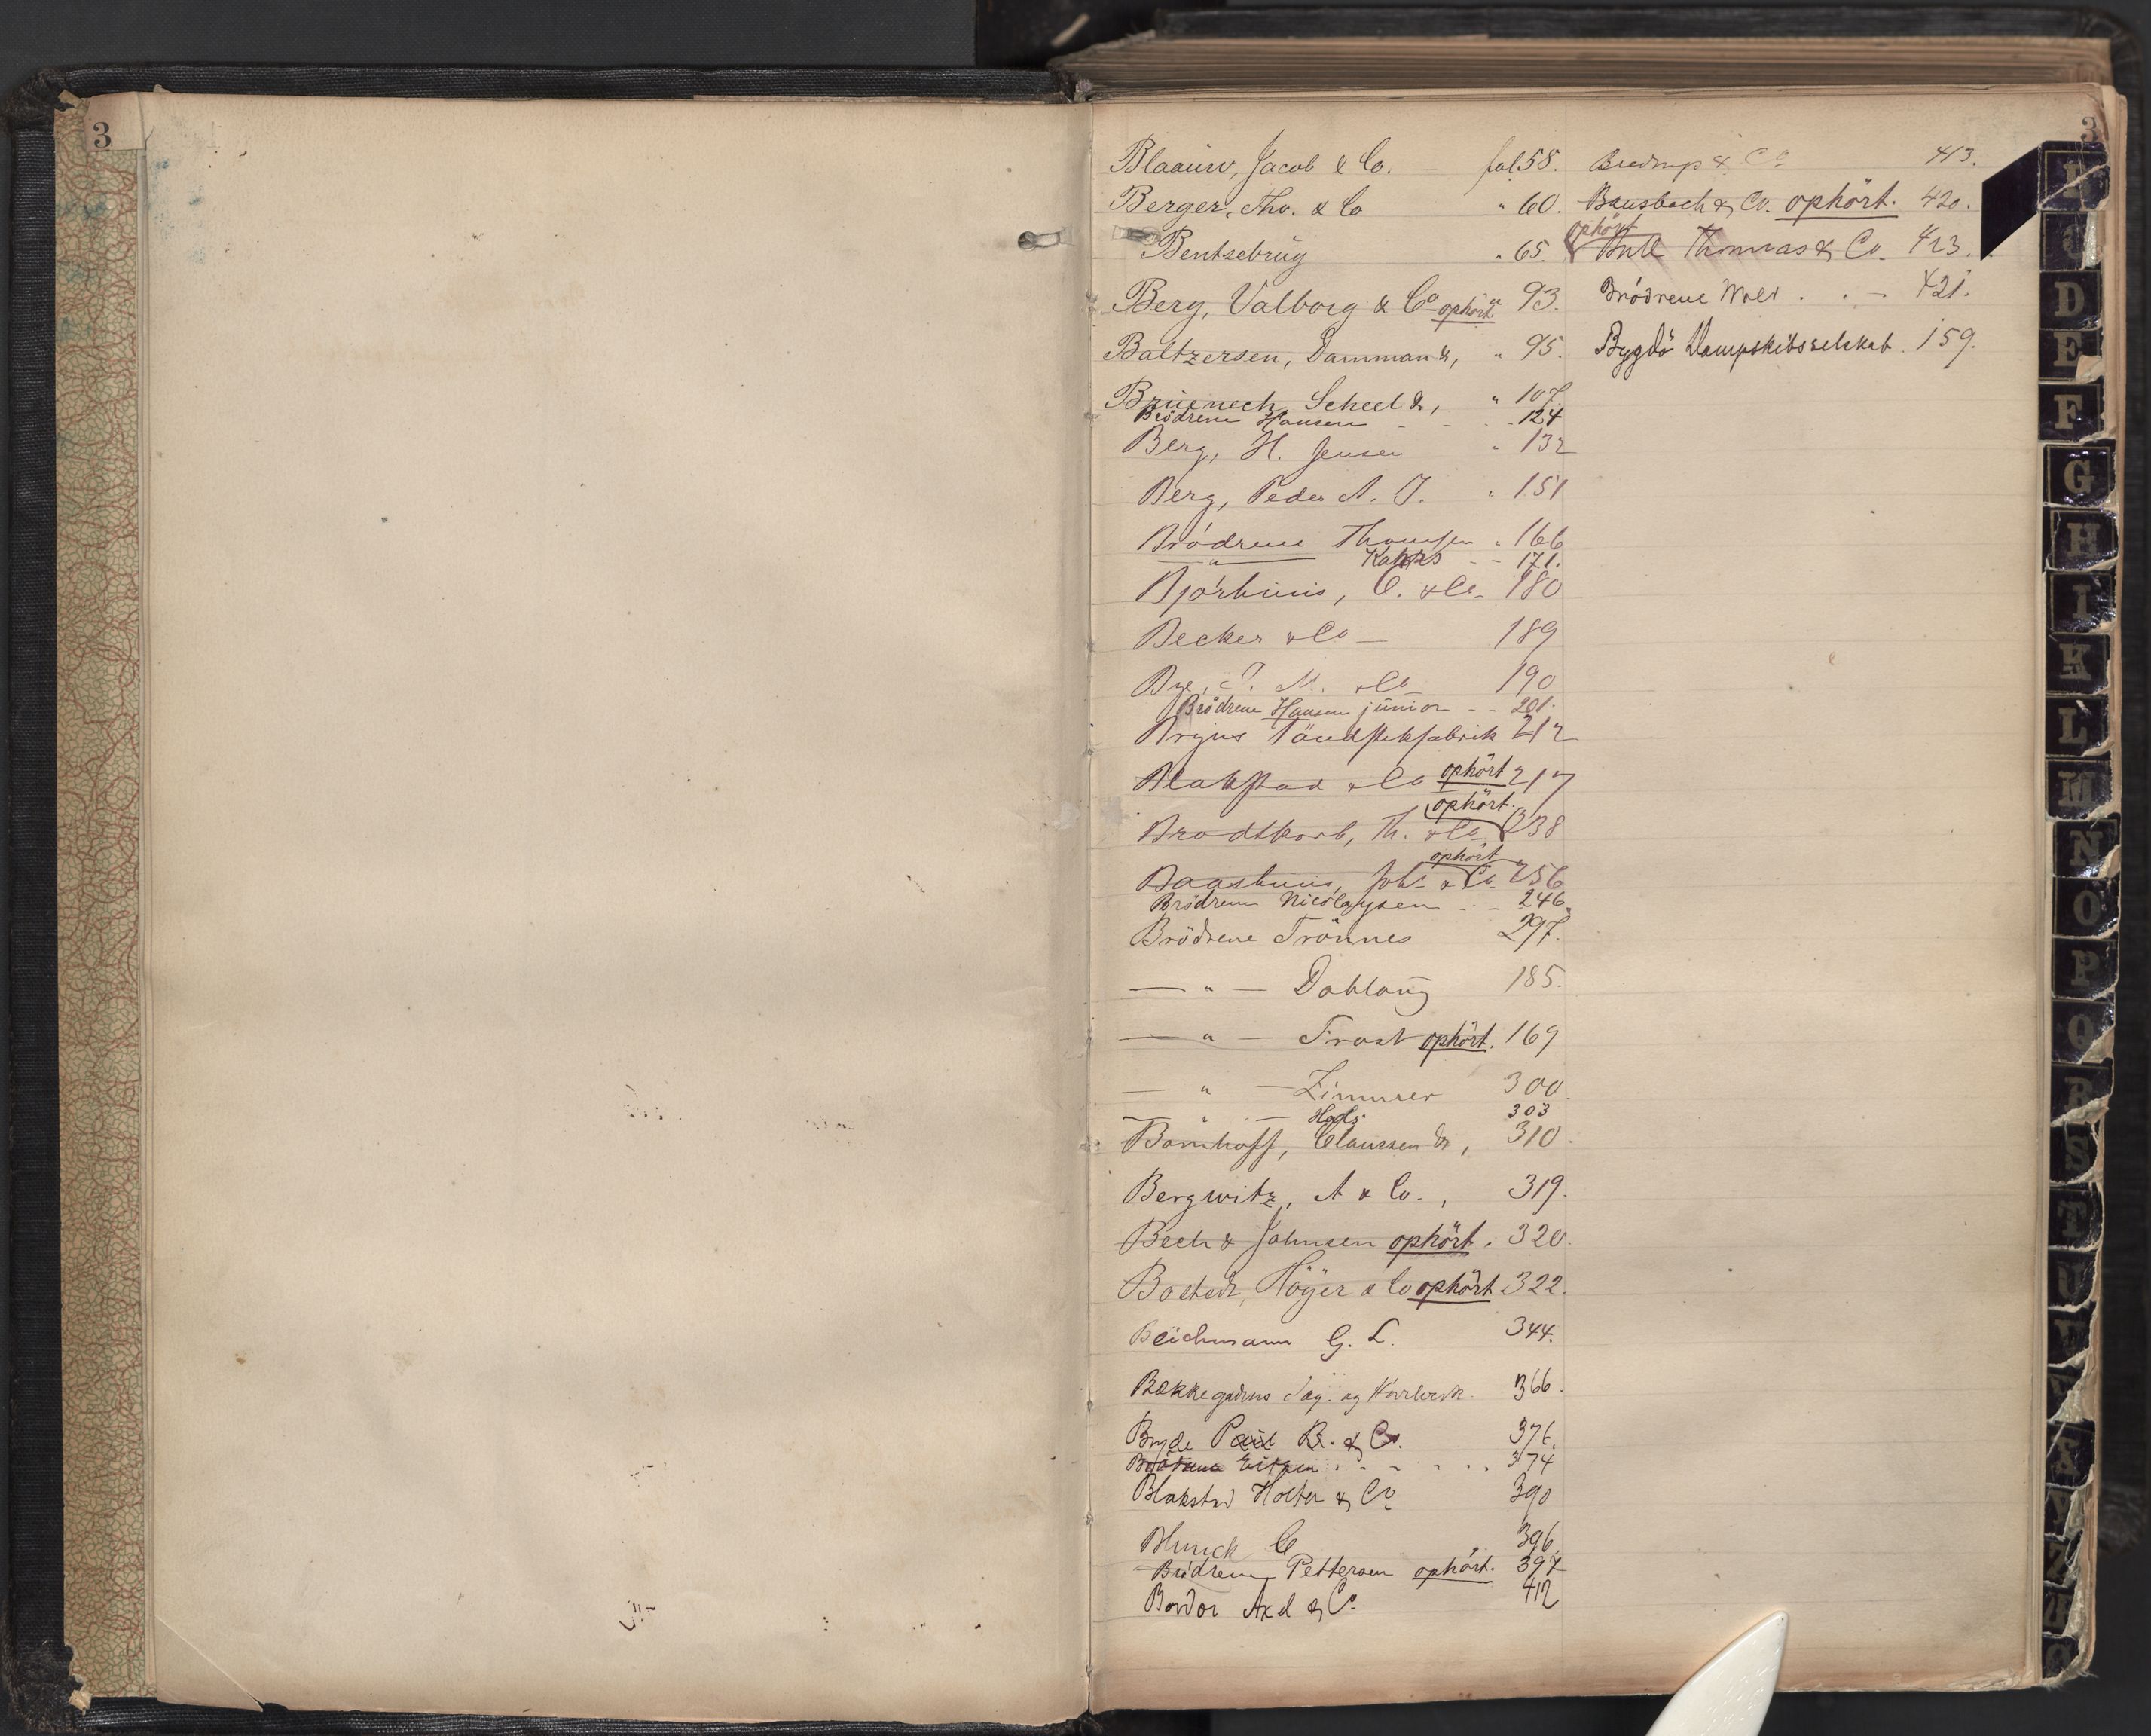 3
3
Blaauw, Jacob & Co. — fol 58.
Berger, Thv. & Co " 60.
Bentsebrug " 65.
Berg, Valborg & Co ophört. " 93.
Baltzersen, Dammann &, " 95.
Bruenech, Scheel &, " 107
Brödrene Hansen - - - 124
Berg, H. Jensen " 132
Berg, Peder A. J. " 151
Brödrene Thomsen " 166
— " — Kahrs - - 171.
Björhuus, C. & Co. 180
Becker & Co — 189
Bye, J. M. & Co 190
Brödrene Hansen junior - - 201.
Bryns Tändstikfabrik 212
Blakstad & Co ophört 217
ophört.
Brodtkorb, Th. & Co 238
ophört
Baashuus, Johs & Co 256
Brödrene Nicolaysen - - 246.
Brödrene Trönnes 297.
— " — Dahlaug 185.
— " — Trost ophört. 169
— " — Zimmer 300
— " — 303
Bomhoff, Claussen &, 310.
Bergwitz, A & Co., 319.
Bech & Johnsen ophört. 320.
Bostedt, Höyer & Co ophört 322.
Beichmann G. L. 344.
Bækkegadens Sag- og Hövleri 366.
Bryde Paul B. & Co. 376.
Brödrene - - - - 374
Blakstad Holter & Co 390
Blunck C 396.
Brödrene Pettersen ophört. 397
Axel & Co. 412
& Co 413.
Bausbach & Co. ophört. 420.
ophört
Bull Thomas & Co. 423.
Brödrene Wold . . - 421.
Bygdö Dampskibsselskab. 159.
B
C
D
E
F
G
H
I
K
L
M
N
O
P
Q
R
S
T
U
V
X
Y
Z
Æ
Ø